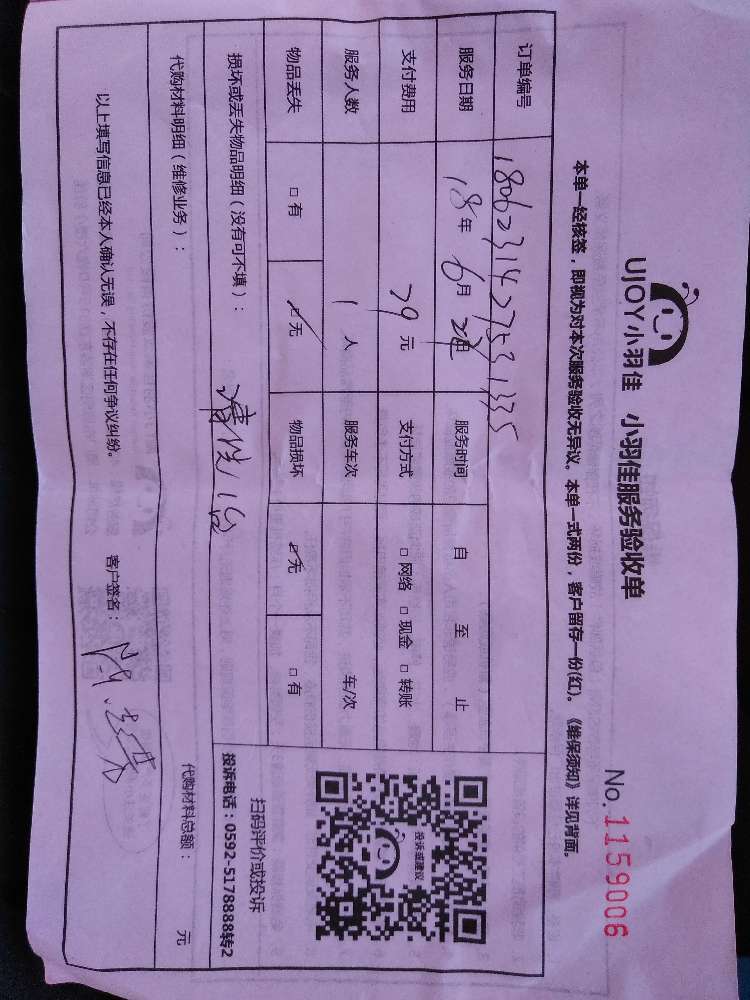 UJOY小羽佳 小羽佳服务验收单 No.1159006
本单一经核签，即视为对本次服务验收无异议。本单一式两份，客户留存一份(红)。《维保须知》详见背面。
订单编号 1806231427531335
服务日期 18年 6月 日 服务时间 自 至 止
支付费用 79元 支付方式 □网络 □现金 □转账
服务人数 1人 服务车次 车/次
物品丢失 □有 □无 物品损坏 □无 □有
损坏或丢失物品明细（没有可不填）：
清洗1台
投诉或建议
扫码评价或投诉
投诉电话：0592-5178888转2
代购材料明细（维修业务）： 代购材料总额： 元
以上填写信息已经本人确认无误，不存在任何争议纠纷。 客户签名：